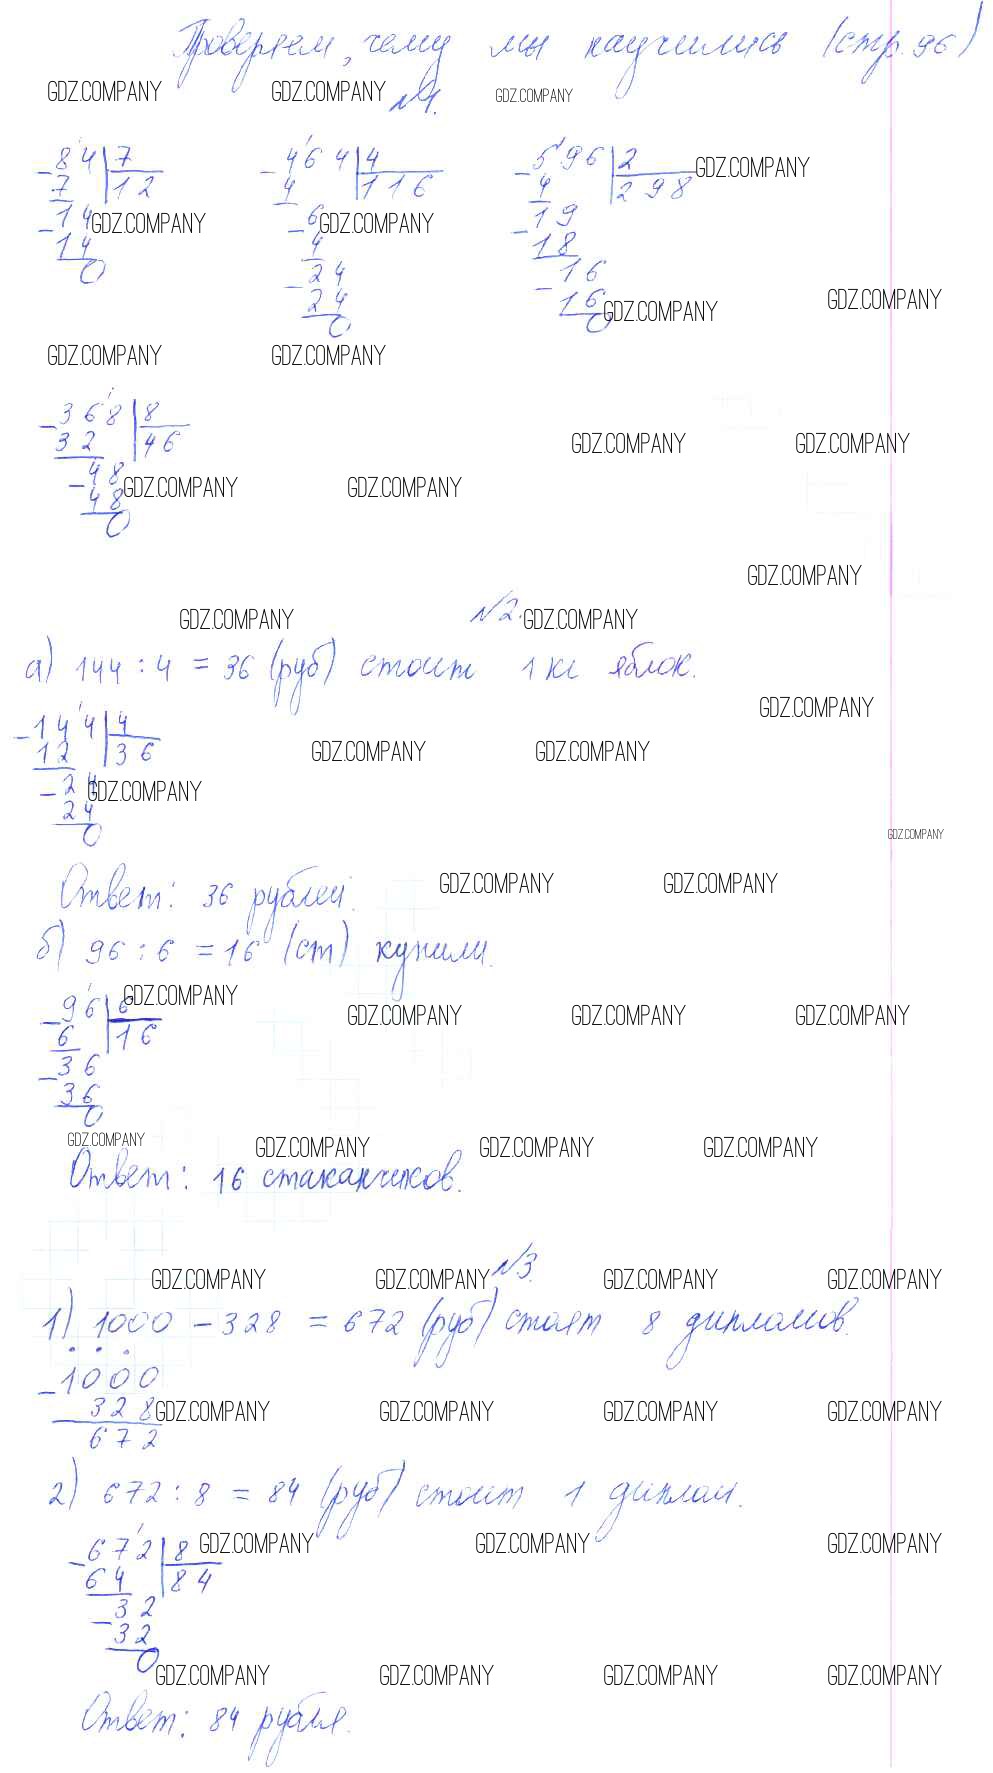 Проверяем, чему мы научились (стр. 96)
GDZ.COMPANY GDZ.COMPANY №1. GDZ.COMPANY
84 | 7 464 | 4 596 | 2 GDZ.COMPANY
-7 | 12 -4 | 116 -4 | 298
-14 GDZ.COMPANY -6 GDZ.COMPANY -19
14 4 18
0 -24 -16
24 16 GDZ.COMPANY GDZ.COMPANY
0 0
GDZ.COMPANY GDZ.COMPANY
-368 | 8
32 | 46 GDZ.COMPANY GDZ.COMPANY
-48 GDZ.COMPANY GDZ.COMPANY
48
0
GDZ.COMPANY
GDZ.COMPANY №2. GDZ.COMPANY
а) 144 : 4 = 36 (руб) стоит 1 кг яблок.
GDZ.COMPANY
-144 | 4
12 | 36 GDZ.COMPANY GDZ.COMPANY
-24 GDZ.COMPANY
24
0 GDZ.COMPANY
Ответ: 36 рублей. GDZ.COMPANY GDZ.COMPANY
б) 96 : 6 = 16 (ст) купили.
-96 | 6 GDZ.COMPANY
6 | 16 GDZ.COMPANY GDZ.COMPANY GDZ.COMPANY
-36
36
0
GDZ.COMPANY GDZ.COMPANY GDZ.COMPANY GDZ.COMPANY
Ответ: 16 стаканчиков.
GDZ.COMPANY GDZ.COMPANY №3. GDZ.COMPANY GDZ.COMPANY
1) 1000 - 328 = 672 (руб) стоят 8 дипломов.
-1000
328 GDZ.COMPANY GDZ.COMPANY GDZ.COMPANY GDZ.COMPANY
672
2) 672 : 8 = 84 (руб) стоит 1 диплом.
-672 | 8 GDZ.COMPANY GDZ.COMPANY GDZ.COMPANY
64 | 84
-32
32
0 GDZ.COMPANY GDZ.COMPANY GDZ.COMPANY GDZ.COMPANY
Ответ: 84 рубля.